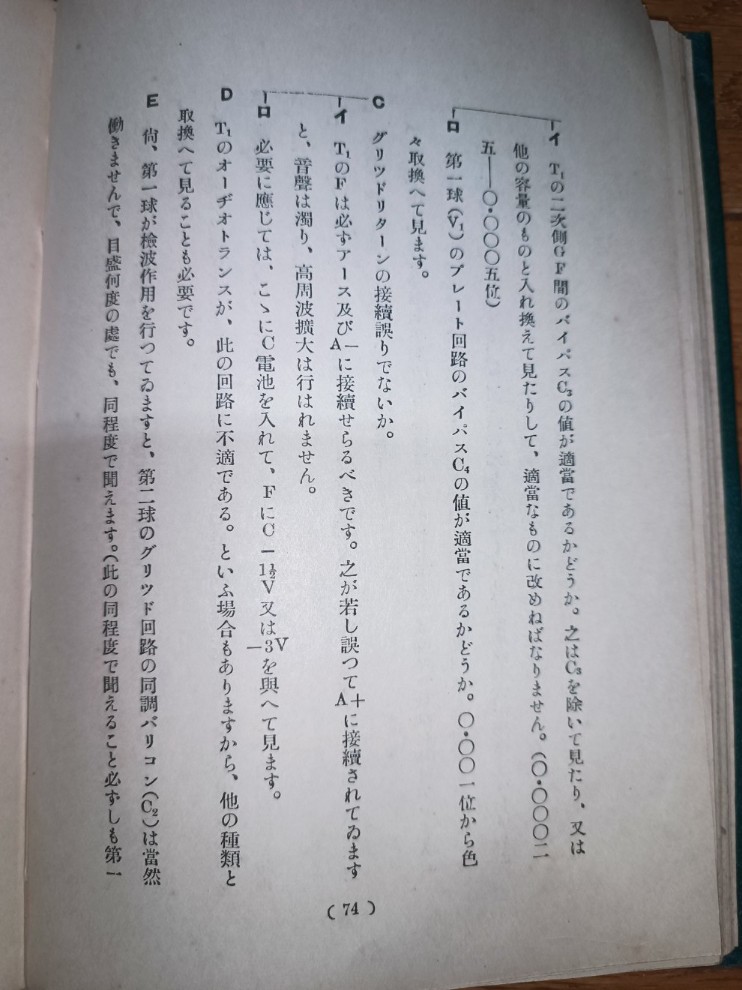 イ T₁の二次側GF間のバイパスC₃の値が適當であるかどうか。之はC₃を除いて見たり、又は
他の容量のものと入れ換えて見たりして、適當なものに改めねばなりません。(〇・〇〇〇二
五——〇・〇〇〇五位)
ロ 第一球(V₁)のプレート回路のバイパスC₄の値が適當であるかどうか。〇・〇〇一位から色
々取換へて見ます。
C グリツドリターンの接續誤りでないか。
イ T₁のFは必ずアース及びA−に接續せらるべきです。之が若し誤つてA+に接續されてゐます
と、音聲は濁り、高周波擴大は行はれません。
ロ 必要に應じては、こゝにC電池を入れて、FにC−1½V又は−3Vを與へて見ます。
D T₁のオーヂオトランスが、此の回路に不適である。といふ場合もありますから、他の種類と
取換へて見ることも必要です。
E 尙、第一球が檢波作用を行つてゐますと、第二球のグリツド回路の同調バリコン(C₂)は當然
働きませんで、目盛何度の處でも、同程度で聞えます。(此の同程度で聞えること必ずしも第一
(74)